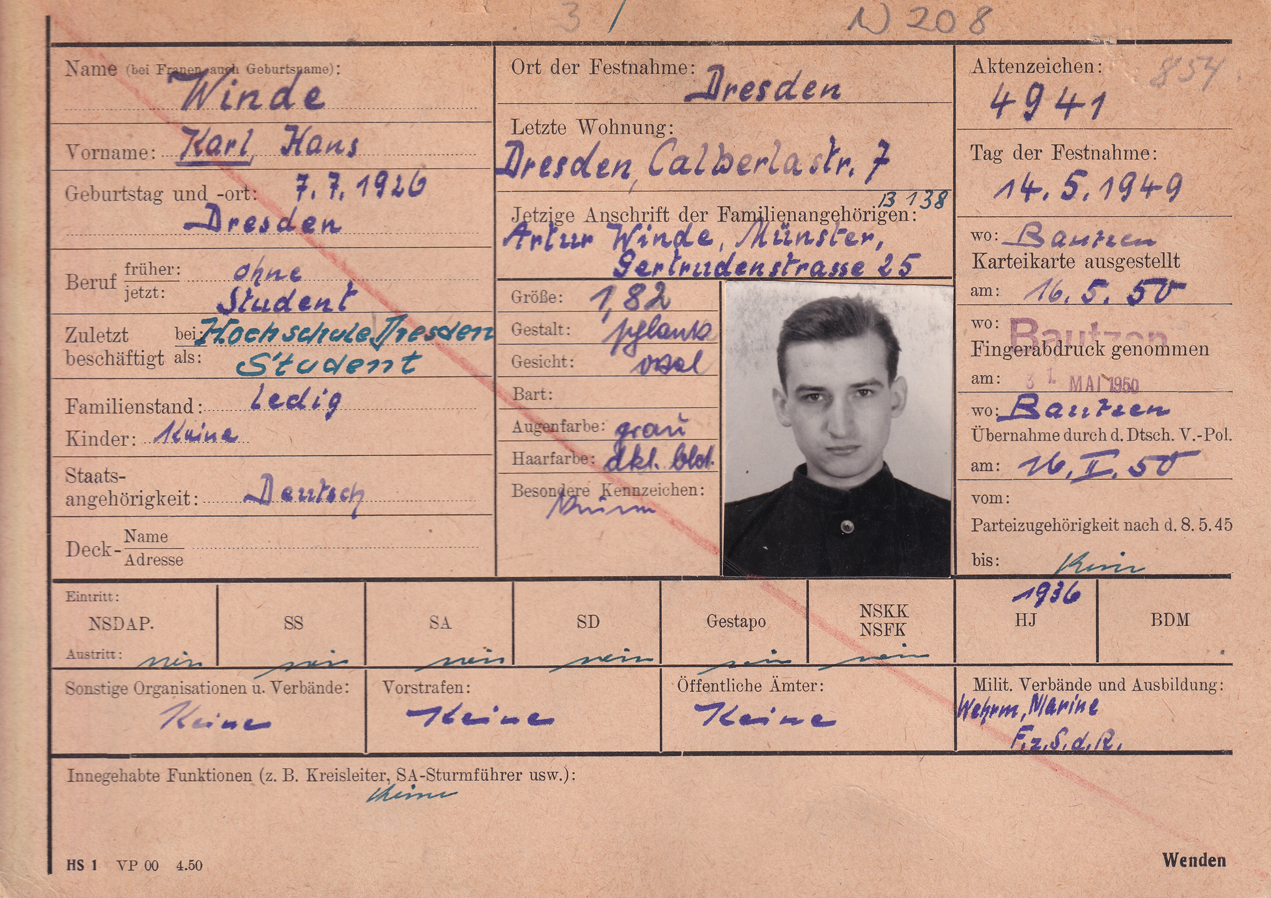 3 / N 208
Name (bei Frauen auch Geburtsname):
Winde
Vorname: Karl, Hans
Geburtstag und -ort: 7.7.1926
Dresden
Beruf früher: ohne
jetzt: Student
Zuletzt beschäftigt bei: Hochschule Dresden
als: Student
Familienstand: ledig
Kinder: Keine
Staats-
angehörigkeit: Deutsch
Deck- Name
Adresse
Ort der Festnahme:
Dresden
Letzte Wohnung:
Dresden, Calberlastr. 7
B 138
Jetzige Anschrift der Familienangehörigen:
Artur Winde, Münster,
Gertrudenstrasse 25
Größe: 1,82
Gestalt: schlank
Gesicht: oval
Bart:
Augenfarbe: grau
Haarfarbe: dkl. bld.
Besondere Kennzeichen:
Aktenzeichen: 854
4941
Tag der Festnahme:
14.5.1949
wo: Bautzen
Karteikarte ausgestellt
am: 16.5.50
wo: Bautzen
Fingerabdruck genommen
am: 31. MAI 1950
wo: Bautzen
Übernahme durch d. Dtsch. V.-Pol.
am: 16.II.50
vom:
Parteizugehörigkeit nach d. 8.5.45
bis: keine
Eintritt: 1936
NSDAP. SS SA SD Gestapo NSKK HJ BDM
NSFK
Austritt: nein nein nein nein nein nein
Sonstige Organisationen u. Verbände:
Keine
Vorstrafen:
Keine
Öffentliche Ämter:
Keine
Milit. Verbände und Ausbildung:
Wehrm, Marine
F.z.S.d.R.
Innegehabte Funktionen (z. B. Kreisleiter, SA-Sturmführer usw.):
Keine
HS 1 VP 00 4.50
Wenden